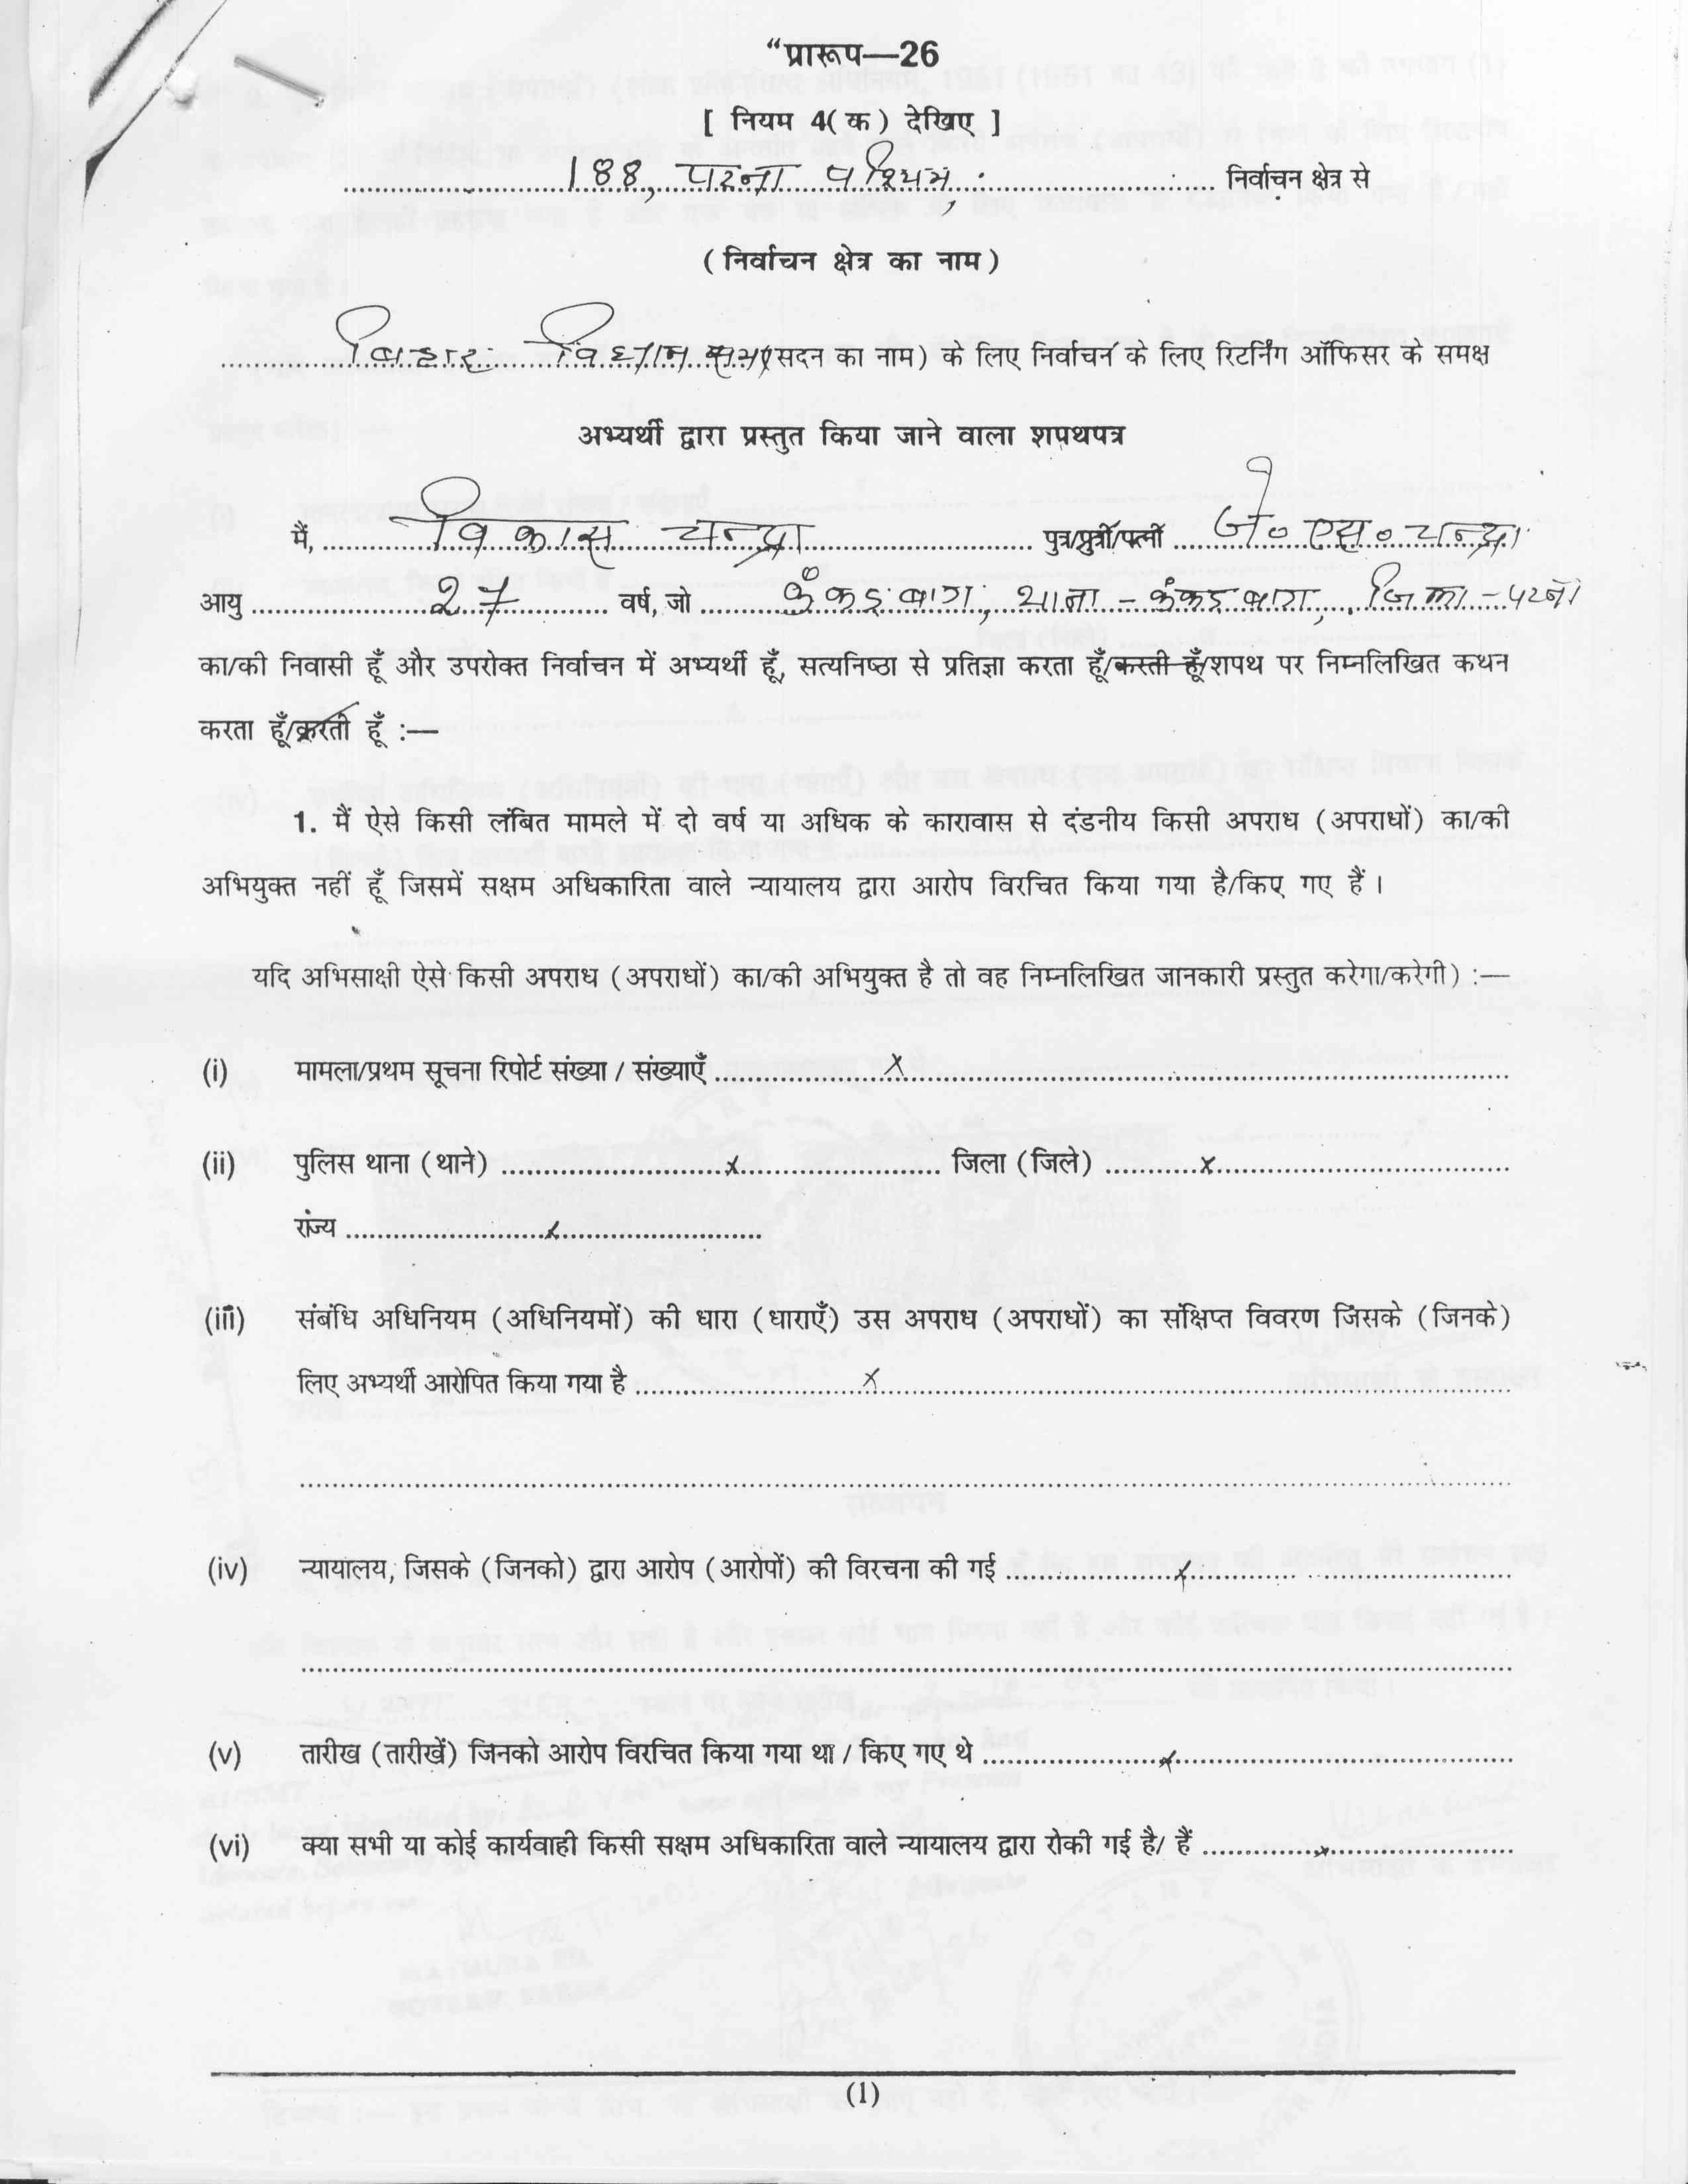 “प्रारूप—26
[ नियम 4( क ) देखिए ]
188, पटना पश्चिम, निर्वाचन क्षेत्र से
( निर्वाचन क्षेत्र का नाम )
बिहार विधान सभा (सदन का नाम) के लिए निर्वाचन के लिए रिटर्निंग ऑफिसर के समक्ष
अभ्यर्थी द्वारा प्रस्तुत किया जाने वाला शपथपत्र
मैं, विकास चन्द्रा पुत्र/पुत्री/पत्नी जे० एस० चन्द्रा
आयु 27 वर्ष, जो कंकड़बाग, थाना - कंकड़बाग, जिला - पटना
का/की निवासी हूँ और उपरोक्त निर्वाचन में अभ्यर्थी हूँ, सत्यनिष्ठा से प्रतिज्ञा करता हूँ/करती हूँ/शपथ पर निम्नलिखित कथन
करता हूँ/करती हूँ :—
1. मैं ऐसे किसी लंबित मामले में दो वर्ष या अधिक के कारावास से दंडनीय किसी अपराध (अपराधों) का/की
अभियुक्त नहीं हूँ जिसमें सक्षम अधिकारिता वाले न्यायालय द्वारा आरोप विरचित किया गया है/किए गए हैं ।
यदि अभिसाक्षी ऐसे किसी अपराध (अपराधों) का/की अभियुक्त है तो वह निम्नलिखित जानकारी प्रस्तुत करेगा/करेगी) :—
(i) मामला/प्रथम सूचना रिपोर्ट संख्या / संख्याएँ x
(ii) पुलिस थाना (थाने) x जिला (जिले) x
राज्य x
(iii) संबंधि अधिनियम (अधिनियमों) की धारा (धाराएँ) उस अपराध (अपराधों) का संक्षिप्त विवरण जिसके (जिनके)
लिए अभ्यर्थी आरोपित किया गया है x
(iv) न्यायालय, जिसके (जिनको) द्वारा आरोप (आरोपों) की विरचना की गई x
(v) तारीख (तारीखें) जिनको आरोप विरचित किया गया था / किए गए थे x
(vi) क्या सभी या कोई कार्यवाही किसी सक्षम अधिकारिता वाले न्यायालय द्वारा रोकी गई है/ हैं x
(1)